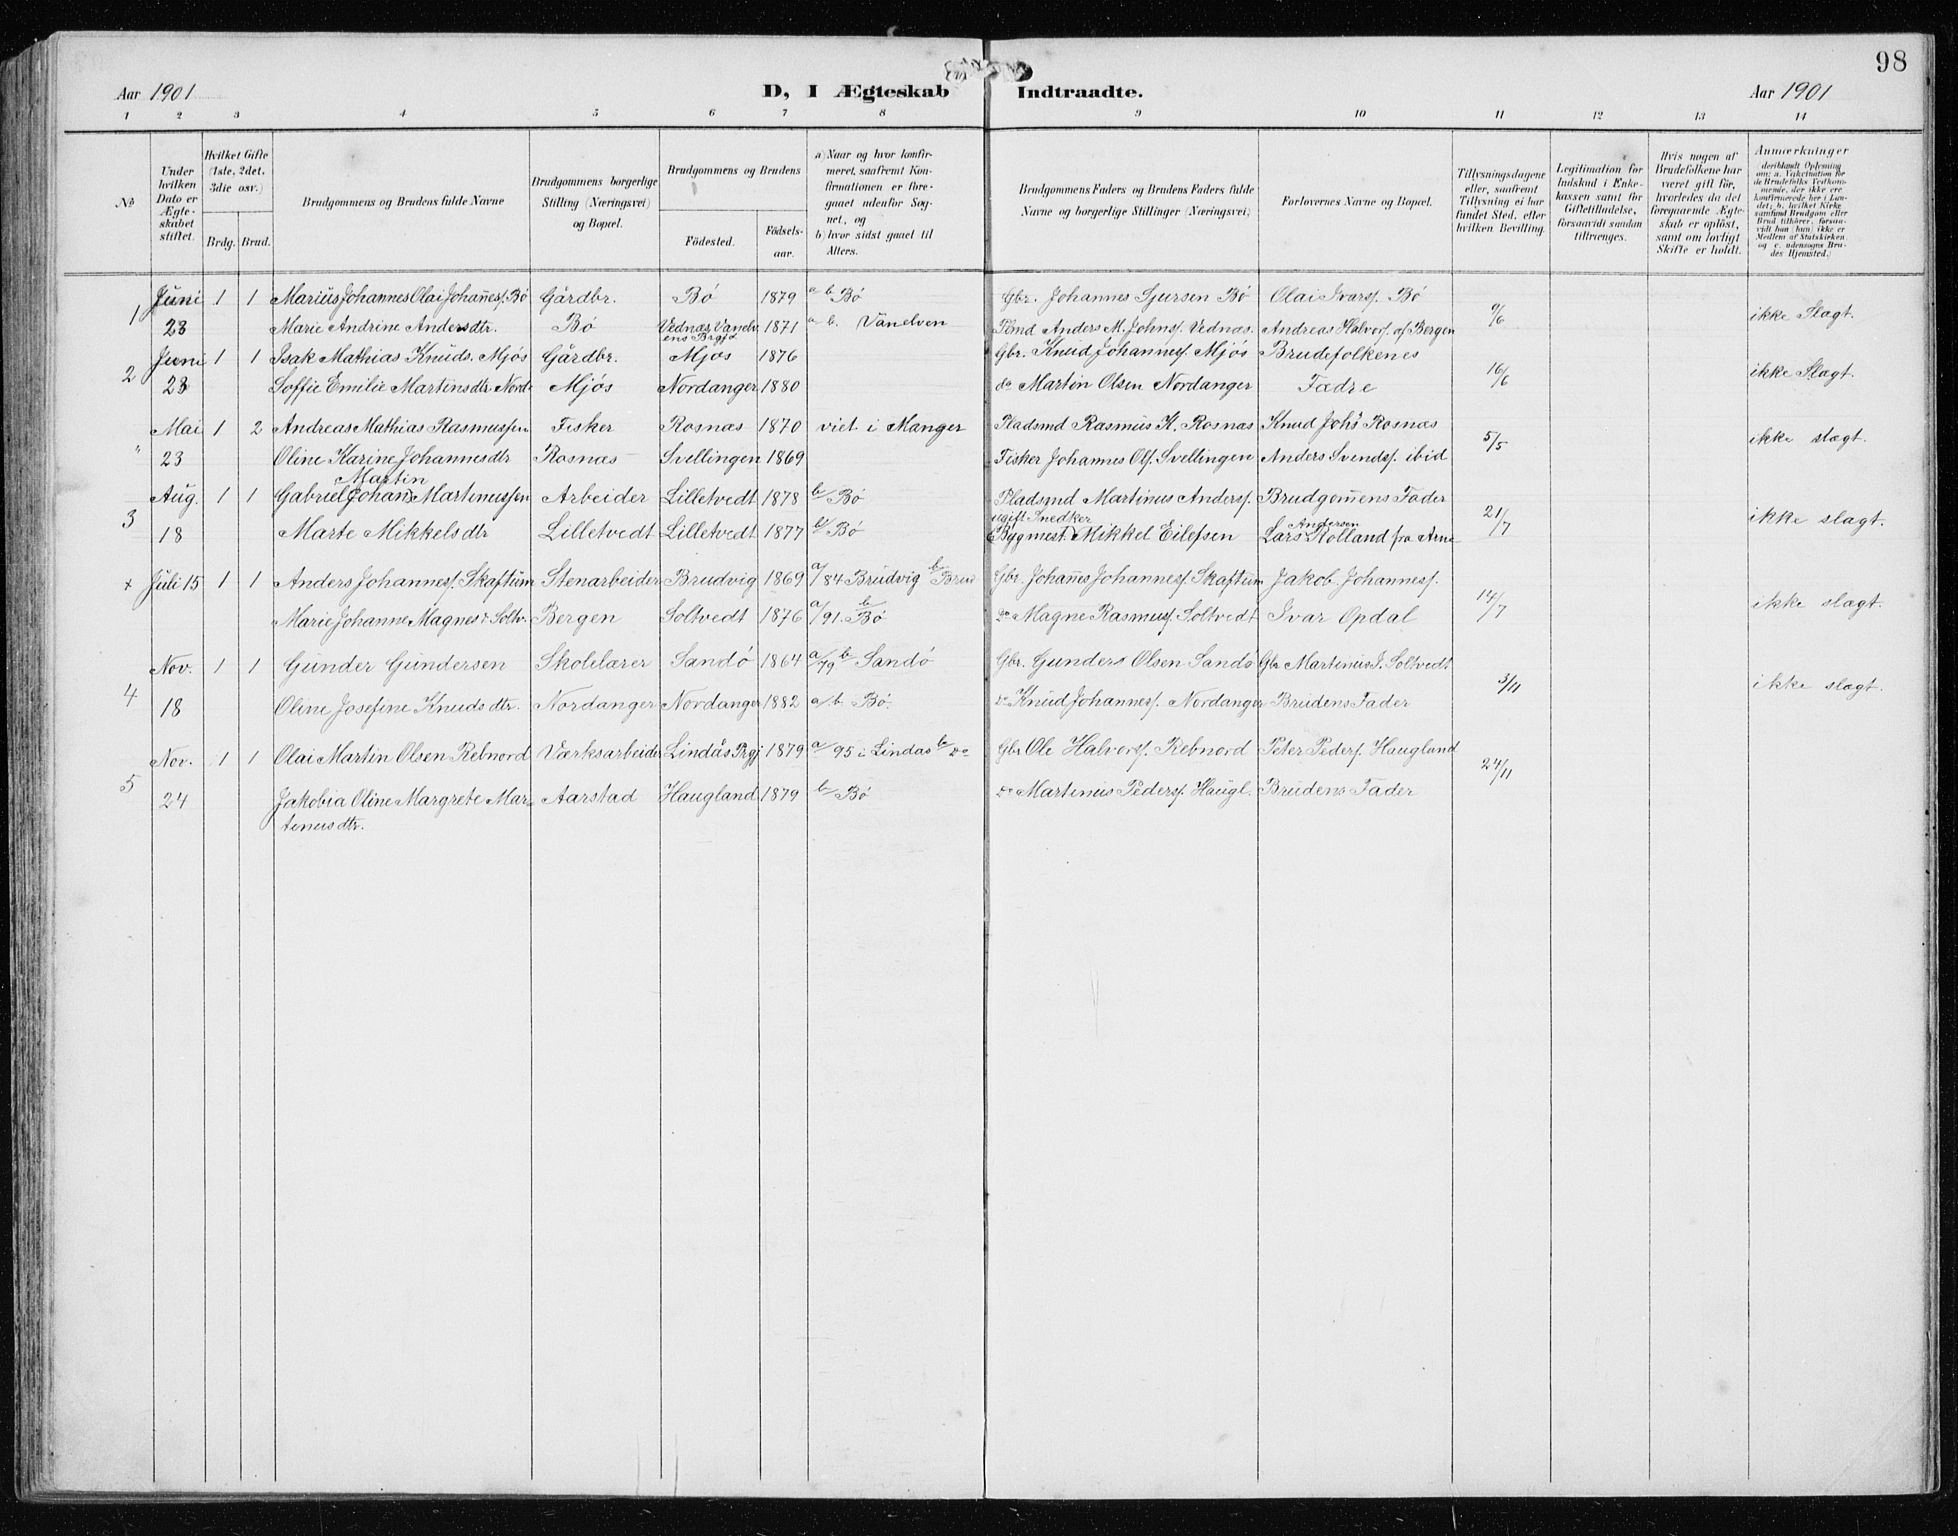 98
Aar 1901 D, I Ægteskab Indtraadte. Aar 1901
1 2 3 4 5 6 7 8 9 10 11 12 13 14
No
Under hvilken Dato er Ægteskabet stiftet.
Hvilket Gifte (1ste, 2det. 3die osv.)
Brdg. Brud.
Brudgommens og Brudens fulde Navne
Brudgommens borgerlige Stilling (Næringsvei) og Bopæl.
Brudgommens og Brudens
Födested.
Födsels-aar.
a) Naar og hvor konfirmeret, saafremt Konfirmationen er foregaaet udenfor Sognet, og
b) hvor sidst gaaet til Alters.
Brudgommens Faders og Brudens Faders fulde Navne og borgerlige Stillinger (Næringsvei)
Forlovernes Navne og Bopæl.
Tillysningsdagene eller, saafremt Tillysning ei har fundet Sted, efter hvilken Bevilling.
Legitimation for Indskud i Enkekassen samt for Giftetilladelse, forsaavidt saadan tiltrænges.
Hvis nogen af Brudefolkene har været gift før, hvorledes da det foregaaende Ægteskab er opløst, samt om lovligt Skifte er holdt.
Anmærkninger
(deriblandt Oplysning om: a. Vakcination for de Brudefolks Vedkommende, der ikke ere konfirmerede her i Landet; b. hvilket Kirkesamfund Brudgom eller Brud tilhører, forsaavidt han (hun) ikke er Medlem af Statskirken, og c. udensogns Brudes Hjemsted.)
1 Juni 1 1 Marius Johannes Olai Johanness. Bö Gårdbr. Bö 1879 a b Bö Gbr. Johannes Sjursen Bö Olai Ivars. Bö 9/6 ikke Slægt.
23 Marie Andrine Andersdtr. Bö Vednæs Vanelvens Prgjd 1871 a b. Vanelven Anders M. Johns. Vednæs. Andreas Halvors. af Bergen
2 Juni 1 1 Isak Mathias Knuds. Mjøs Gårdbr. Mjøs 1876 Gbr. Knud Johanness. Mjøs Brudefolkenes 16/6 ikke Slægt.
23 Soffie Emilie Martinsdtr Nord- Mjøs Nordanger 1880 do Martin Olsen Nordanger Fædre
" Mai 1 2 Andreas Mathias Rasmussen Fisker Rosnæs 1870 viet i Manger Pladsmd Rasmus K. Rosnæs Knud Johs Rosnæs 5/5 ikke slægt.
23 Oline Karine Johannesdtr Rosnæs Svellingen 1869 Fisker Johannes Ols. Svellingen Anders Svends. ibid
3 Aug. 1 1 Gabriel Johan Martin Martinussen Arbeider Lilletvedt 1878 b/ Bö Pladsmd Martinus Anders. Brudgommens Fader 21/7 ikke slægt.
18 Marte Mikkelsdtr Lilletvedt Lilletvedt 1877 b/ Bö ugift Snedker Bygmest. Mikkel Eilefsen Lars Andersen Rolland fra Arne
+ Juli 15 1 1 Anders Johanness. Skaftum Stenarbeider Brudvig 1869 a/84 Brudvig b/ Brud Gbr. Johannes Johanness. Skaftum Jakob Johanness. 14/7 ikke slægt.
Marie Johanne Magnesd Soltv. Bergen Soltvedt 1876 a/91. b/ Bö do Magne Rasmuss. Soltvedt Ivar Opdal
4 Nov. 1 1 Gunder Gundersen Skolelærer Sandö 1864 a/79 b Sandö Gbr. Gunders Olsen Sandö Gbr Martinus J. Soltvedt 3/11 ikke slægt.
18 Oline Josefine Knudsdtr. Nordanger Nordanger 1882 a/b. Bö. do Knud Johanness. Nordanger Brudens Fader
5 Nov. 1 1 Olai Martin Olsen Rebnord Værksarbeider Lindås Prgj 1879 a/95 i Lindås b/ do Gbr Ole Halvors. Rebnord Peter Peders. Haugland 24/11
24 Jakobia Oline Margrete Mar- Aarstad Haugland 1879 b/ Bö do Martinus Peders. Haugl. Brudens Fader
tinusdtr.